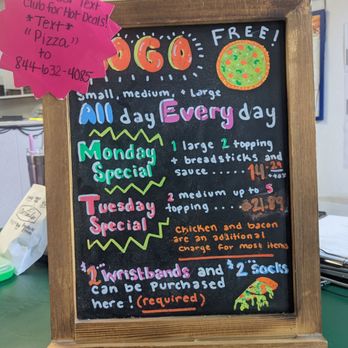 Text
Club for Hot Deals!
*Text*
"Pizza"
to
844-632-4085
BOGO FREE!
Small, medium, + Large
All day Every day
Monday Special
1 large 2 topping
+ breadsticks and
sauce ..... 14.29
+tax
Tuesday Special
2 medium up to 5
topping .... $21.89
Chicken and bacon
are an additional
charge for most items
$2 wristbands and $2 socks
can be purchased
here! (required)